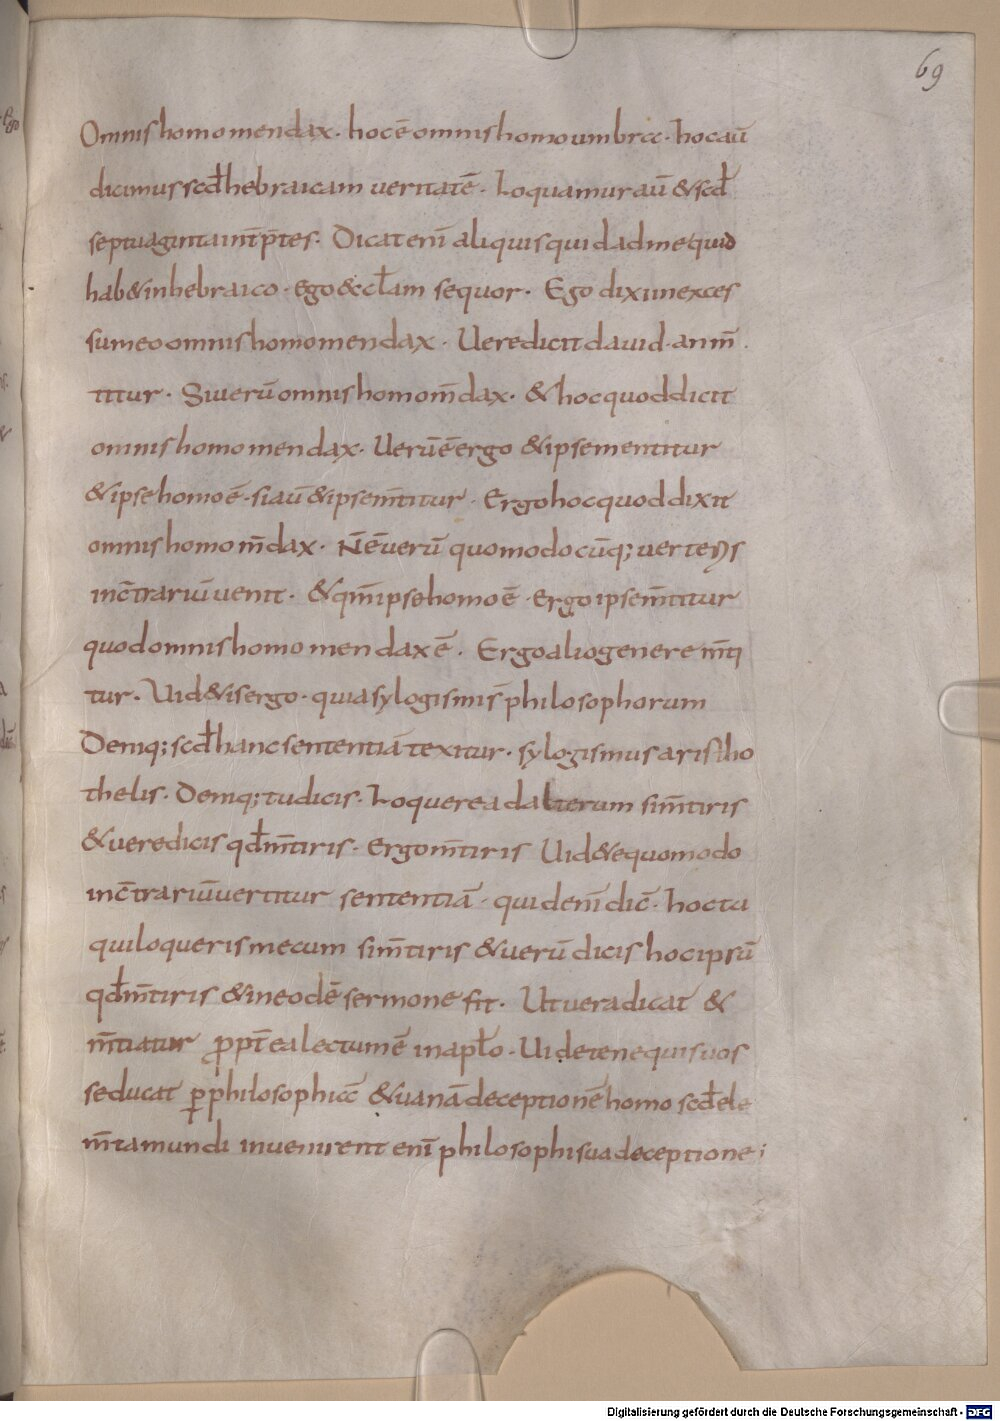 69
Omnis homo mendax. hoc ē omnis homo umbra. hoc aū
dicimus scđ hebraicam veritatē. Loquamur aū & scđ
septuaginta int̄p̄tes. Dicat enī aliquis quid ad me quid
hab& in hebraico. Ego æccl̄am sequor. Ego dixi in exces
su meo omnis homo mendax. Uere dicit david. an m̄
titur. Si uerū omnis homo m̄dax. & hoc quod dicit
omnis homo mendax. Uerū ē ergo & ipse mentitur
& ipse homo ē. si aū & ipse m̄titur. Ergo hoc quod dixit
omnis homo m̄dax. N̄ ē verū quomodocūq; verteris
in c̄trariū venit. & qm̄ ipse homo ē. Ergo ipse m̄titur
quod omnis homo mendax ē. Ergo alio genere m̄ti
tur. Uid&is ergo. quia sylogismis philosophorum
Deniq; scđ hanc sententiā texitur. sylogismus aristho
thelis. Deniq; tu dicis. Loquere ad alterum si m̄tiris
& uere dicis qđ m̄tiris. Ergo m̄tiris Uid&e quomodo
in c̄trariū vertitur sententiā. quid enī dic̄. hoc tu
qui loqueris mecum si m̄tiris & uerū dicis hoc ipsū
qđ m̄tiris & in eodē sermone fit. Ut vera dicat &
m̄tiatur p̱ropt̄ ea lectum ē in apłō. Uidete ne quis vos
seducat p̱ philosophiā & vanā deceptionē homo scđ ele
m̄ta mundi invenirent enī philosophi sua deceptione;
Digitalisierung gefördert durch die Deutsche Forschungsgemeinschaft - DFG